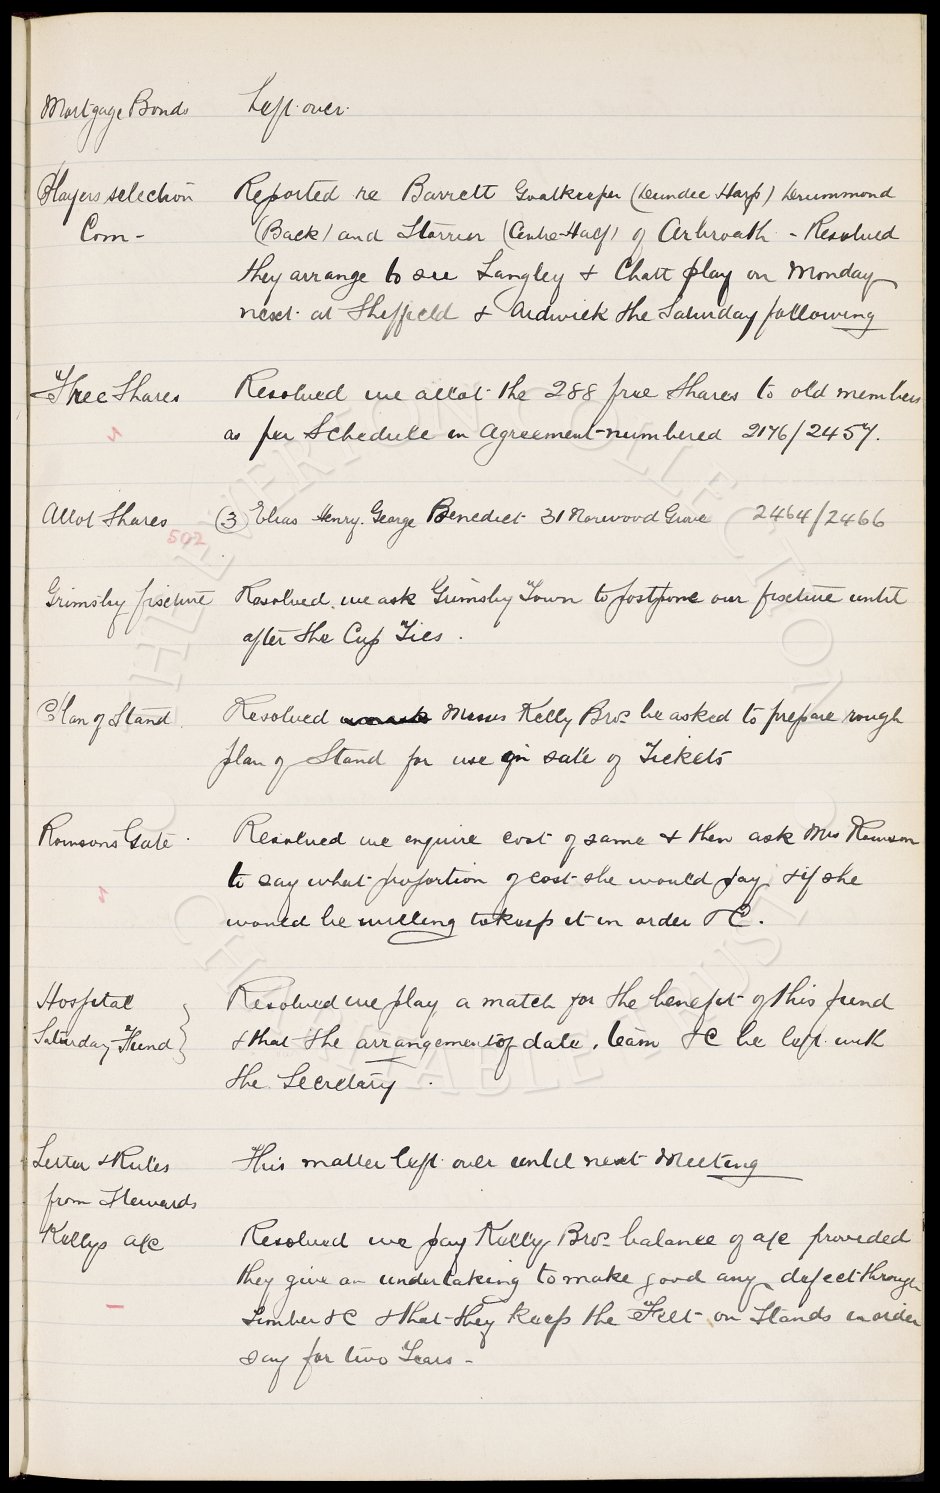 Mortgage Bonds Left over.
Players selection Reported re Barrett Goalkeeper (Dundee Harp) Drummond
Com- (Back) and Storrier (Centre-Half) of Arbroath - Resolved
they arrange to see Langley & Chatt play on Monday
next at Sheffield & Ardwick the Saturday following
Free Shares Resolved we allot the 288 free Shares to old members
as per Schedule in Agreement numbered 2176/2457.
Allot Shares (3) Elias Henry George Benedict 31 Norwood Grove 2464/2466
502
Grimsby fixture Resolved we ask Grimsby Town to postpone our fixture until
after the Cup Ties.
Plan of Stand Resolved Messrs Kelly Bros. be asked to prepare rough
plan of Stand for use in sale of Tickets
Rowsons Gate Resolved we enquire cost of same & then ask Mrs Rowson
to say what proportion of cost she would pay & if she
would be willing to keep it in order &C.
Hospital Resolved we play a match for the benefit of this fund
Saturday Fund & that the arrangements of date, team &C be left with
the Secretary.
Letter & Rules This matter left over until next Meeting
from Stewards
Kellys a/c Resolved we pay Kelly Bros. balance of a/c provided
they give an undertaking to make good any defect through
Timber &C & that they keep the Felt on Stands in order
say for two Years -
THE EVERTON COLLECTION
CHARITABLE TRUST